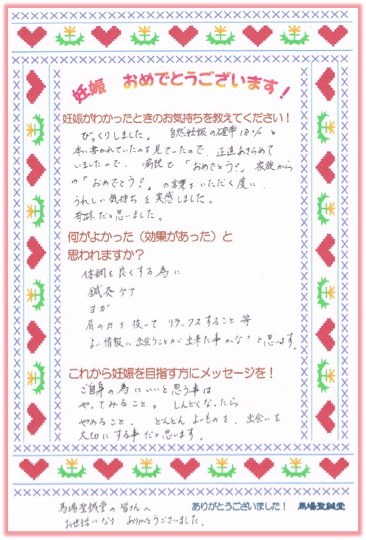 妊娠 おめでとうございます！
妊娠がわかったときのお気持ちを教えてください！
びっくりしました。自然妊娠の確率18%と
本に書かれていたのを見ていたので、正直あきらめて
いましたので、病院で「おめでとう?」家族から
の「おめでとう?」の言葉をいただく度に、
うれしい気持ちを実感しました。
奇跡だと思いました。
何がよかった（効果があった）と
思われますか？
体調を良くする為に
鍼灸ケア
ヨガ
肩の力を抜いてリラックスすること等
よい情報に出会うことが出来た事かな！と思います。
これから妊娠を目指す方にメッセージを！
ご自身の為にいいと思う事は
やってみること。しんどくなったら
やめること。どんどんよいものを、出会いを
大切にする事だと思います。
ありがとうございました！ 馬場聖鍼堂
馬場聖鍼堂の皆さんへ
お世話になり ありがとうございました。